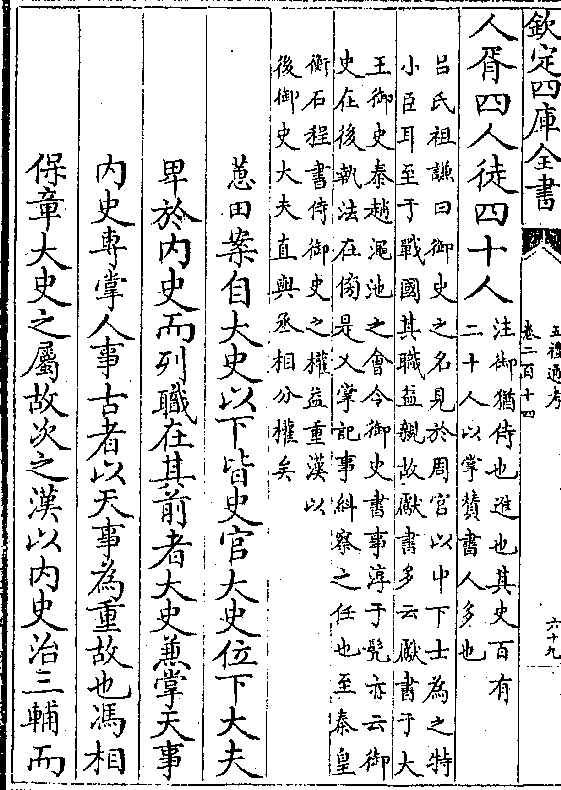 欽定四庫全書
五禮通考
卷二百十四
六十九
人胥四人徒四十人
注御猶侍也進也其史百有
二十人以掌贊書人多也
呂氏祖謙曰御史之名見於周官以中下士為之特
小臣耳至于戰國其職益親故獻書多云獻書于大
王御史秦趙澠池之會令御史書事淳于髠亦云御
史在後執法在傍是又掌記事糾察之任也至秦皇
衡石程書侍御史之權益重漢以
後御史大夫直與丞相分權矣
蕙田案自大史以下皆史官大史位下大夫
卑於内史而列職在其前者大史兼掌天事
内史專掌人事古者以天事為重故也馮相
保章大史之屬故次之漢以内史治三輔而